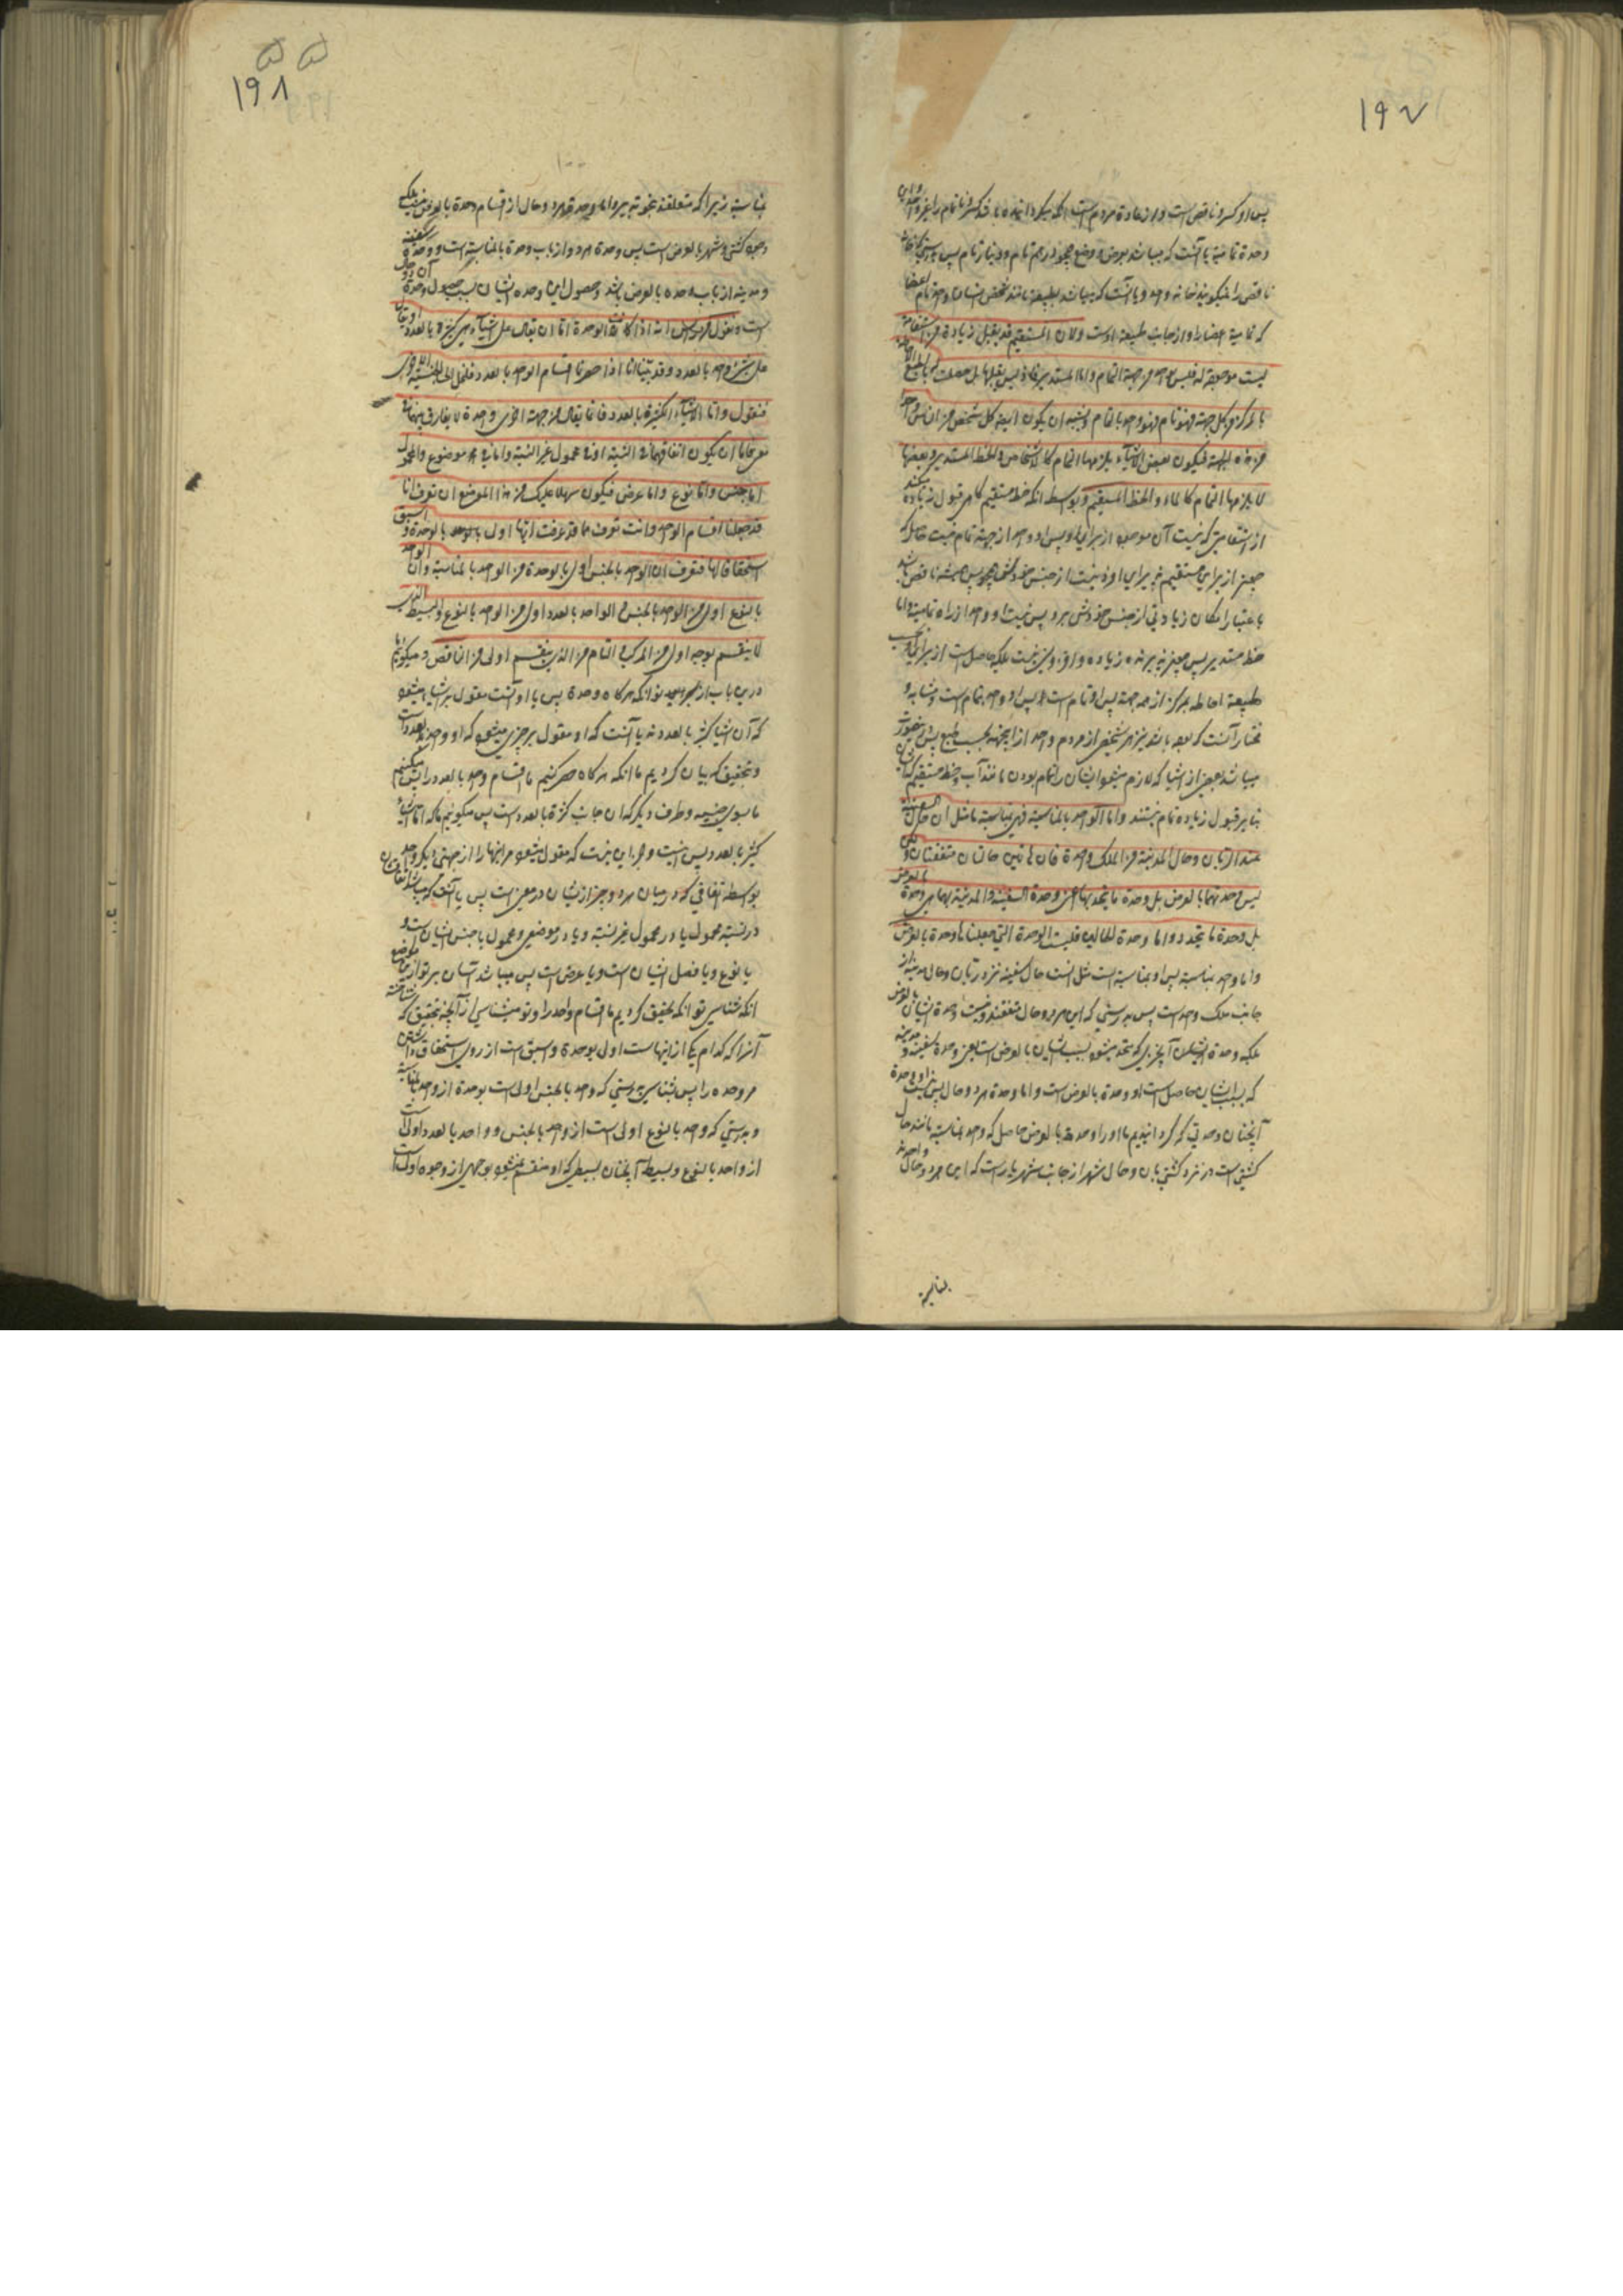 ۱۹۷
پس او کسر و ناقص است و از عادة مردم است آنکه میگردانند
وحدة تمامیة یا آنست که میباشد بفرض و وضع همچو درهم تام و دینار تام پس بدرستی که
ناقص را نمیگویند واحد و یا آنست که میباشد بطبیعة مانند شخص انسان واحد تام اعضا
که تمامیة اعضا او از جانب طبیعة اوست ولان المستقیم قد یقبل زیادة فی استقامة
لیست موجودة له فلیس بواحد من جهة التمام واما المستدیر فاذ لیس یقبلها بل حصلت له بالطبع الاحاطة
بالمرکز من کل جهة فهو تام فهو واحد بالتمام ویشبه ان یکون ایضا کل شخص من الناس واحدا
من هذه الجهة فیکون بعض الاشیاء یلزمها التمام کالاشخاص والخط المستدیر وبعضها
لا یلزمها التمام کالماء والخط المستقیم و بواسطه آنکه خط مستقیم گاهی قبول زیاده میکند
از استقامتی که نیست آن موجود از برای او پس او واحد از جهة تمام نیست
باعتبار امکان زیادتی از جنس خودش برو پس نیست او واحد از راه تمامیة و اما
خط مستدیر پس چیز پذیرنده زیاده و افزونی نیست بلکه حاصل است از برای او بحسب
طبیعة احاطه بمرکز از همه جهة پس او تام است پس او واحد بتمام است و مشابه و
مختار آنست که بوده باشد نیز هر شخص از مردم واحد ازین جهة بحسب طبع
میباشد بعضی از اشیا که لازم میشود ایشان را تمام بودن مانند آب و خط مستقیم که
بنابر قبول زیاده تام نیستند واما الواحد بالمناسبة فهی بمناسبة ما مثل ان حال السفینة
عند الربان وحال المدینة من الملک واحدة فان هاتین حالتان متفقتان ولکن
لیس وحدتهما بالعرض بل وحدة ما یتحد بهما اعنی وحدة السفینة والمدینة بهما هی وحدة بالعرض
بل وحدة ما یتحد و اما وحدة الحالین فلیست الوحدة التی جعلناها وحدة بالعرض
و اما واحد بمناسبة پس او بمناسبة است مثل آنست حال سفینه نزد ربان و حال مدینه از
جانب ملک واحد است پس بدرستی که این هر دو حال متفقند و نیست وحدة ایشان بالعرض
بلکه وحدة ایشان آنچیزی که متحد میشود بسبب ایشان بالعرض است یعنی وحدة سفینه و مدینه
که بسبب ایشان حاصل است او وحدة بالعرض است و اما وحدة هر دو حال پس نیست او وحدة
آنچنان وحدتی که گردانیدیم ما او را وحدة بالعرض حاصل که واحد بمناسبة مانند حال
کشتی است در نزد کشتی بان و حال شهر از جانب شهریار است که این هر دو حال واحدند
بنابر
۱۹۸
۱۰۰
بمناسبة زیرا که متعلقند بنحو تدبیر و اما وحدة هر دو حال از اقسام وحدة بالعرض نیست بلکه
وحدة کشتی و شهر بالعرض است پس وحدة هر دو از باب وحدة بالمناسبة است و وحدة سفینه
و مدینه از باب وحدة بالعرض باشد و حصول این وحده ایشان بسبب حصول وحدة آن دو حال
است ونقول من رأس انه اذا کانت الوحدة اما ان یقال علی اشیاء هی کثیرة بالعدد او یقال
علی شیء واحد بالعدد وقد بینا انا اذا حصرنا اقسام الواحد بالعدد فلنمل الی الحیثیة الاخری
فنقول واما الاشیاء الکثیرة بالعدد فانما یقال من جهة اخری واحدة لاتفاق بینهما فی
معنی فاما ان یکون اتفاقهما فی النسبة او فی محمول غیر النسبة واما فی موضوع والمحمول
اما جنس واما نوع واما عرض فیکون سهلا علیک من هذا الموضع ان تعرف انا
قد حصلنا اقسام الواحد وانت تعرف مما قد عرفت ایها اولی بالوحدة و اسبق
استحقاقا لها فتعرف ان الواحد بالجنس اولی بالوحدة من الواحد بالمناسبة وان الواحد
بالنوع اولی من الواحد بالجنس والواحد بالعدد اولی من الواحد بالنوع والبسیط الذی
لا ینقسم بوجه اولی من المرکب والتام من الذی ینقسم اولی من الناقص و میگوئیم ما
درین باب از سر نو آنکه هرگاه وحدة پس یا او آنست مقول بر اشیاء میشود
که آن اشیا کثیر بالعددند یا آنست که او مقول بر چیزی میشود که او واحد بعدد است
و بتحقیق که بیان کردیم ما آنکه هرگاه حصر کنیم ما اقسام واحد بالعدد را پس میکنیم
ما بسوی حیثیه و طرف دیگر که آن جانب کثرة بالعدد است پس میگوئیم ما که اما اشیاء
کثیر بالعدد پس نیست و جز این نیست که مقول میشود مر اینها را از جهتی دیگر واحد
بواسطه اتفاقی که در میان هر دو چیز ازیشان در معنی است پس یا آنست که میباشد اتفاق ایشان
در نسبة محمول یا در محمول غیر نسبة و یا در موضوعی و محمول یا جنس ایشان است و
یا نوع و یا فصل ایشان است و یا عرض است پس میباشد آسان بر تو ازین موضع
آنکه شناسی تو آنکه تحقیق کردیم ما اقسام واحد را و تو میشناسی از آنچه بتحقیق که شناخته
آنرا که کدام یک از اینهاست اولی بوحدة و اسبق است از روی استحقاق داشتن
مر وحده را پس بشناس بدرستی که واحد بالجنس اولی است بوحدة از واحد بالمناسبة
و بدرستی که واحد بالنوع اولی است از واحد بالجنس و واحد بالعدد اولی است
از واحد بالنوع و بسیط آنچنان بسیطی که او منقسم نمیشود بوجهی از وجوه اولی است